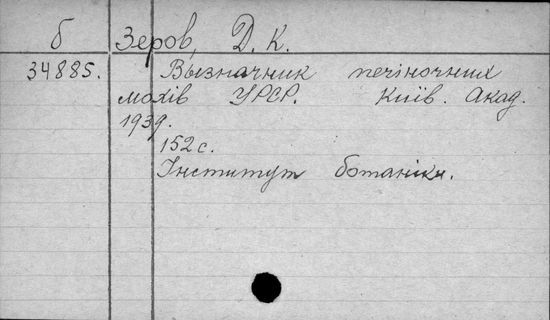 б Зеров, Д. К.
34885. Вызначник печіночних
мохів УРСР. Київ. Акад.
1939.
152 с.
Інститут ботаніки.